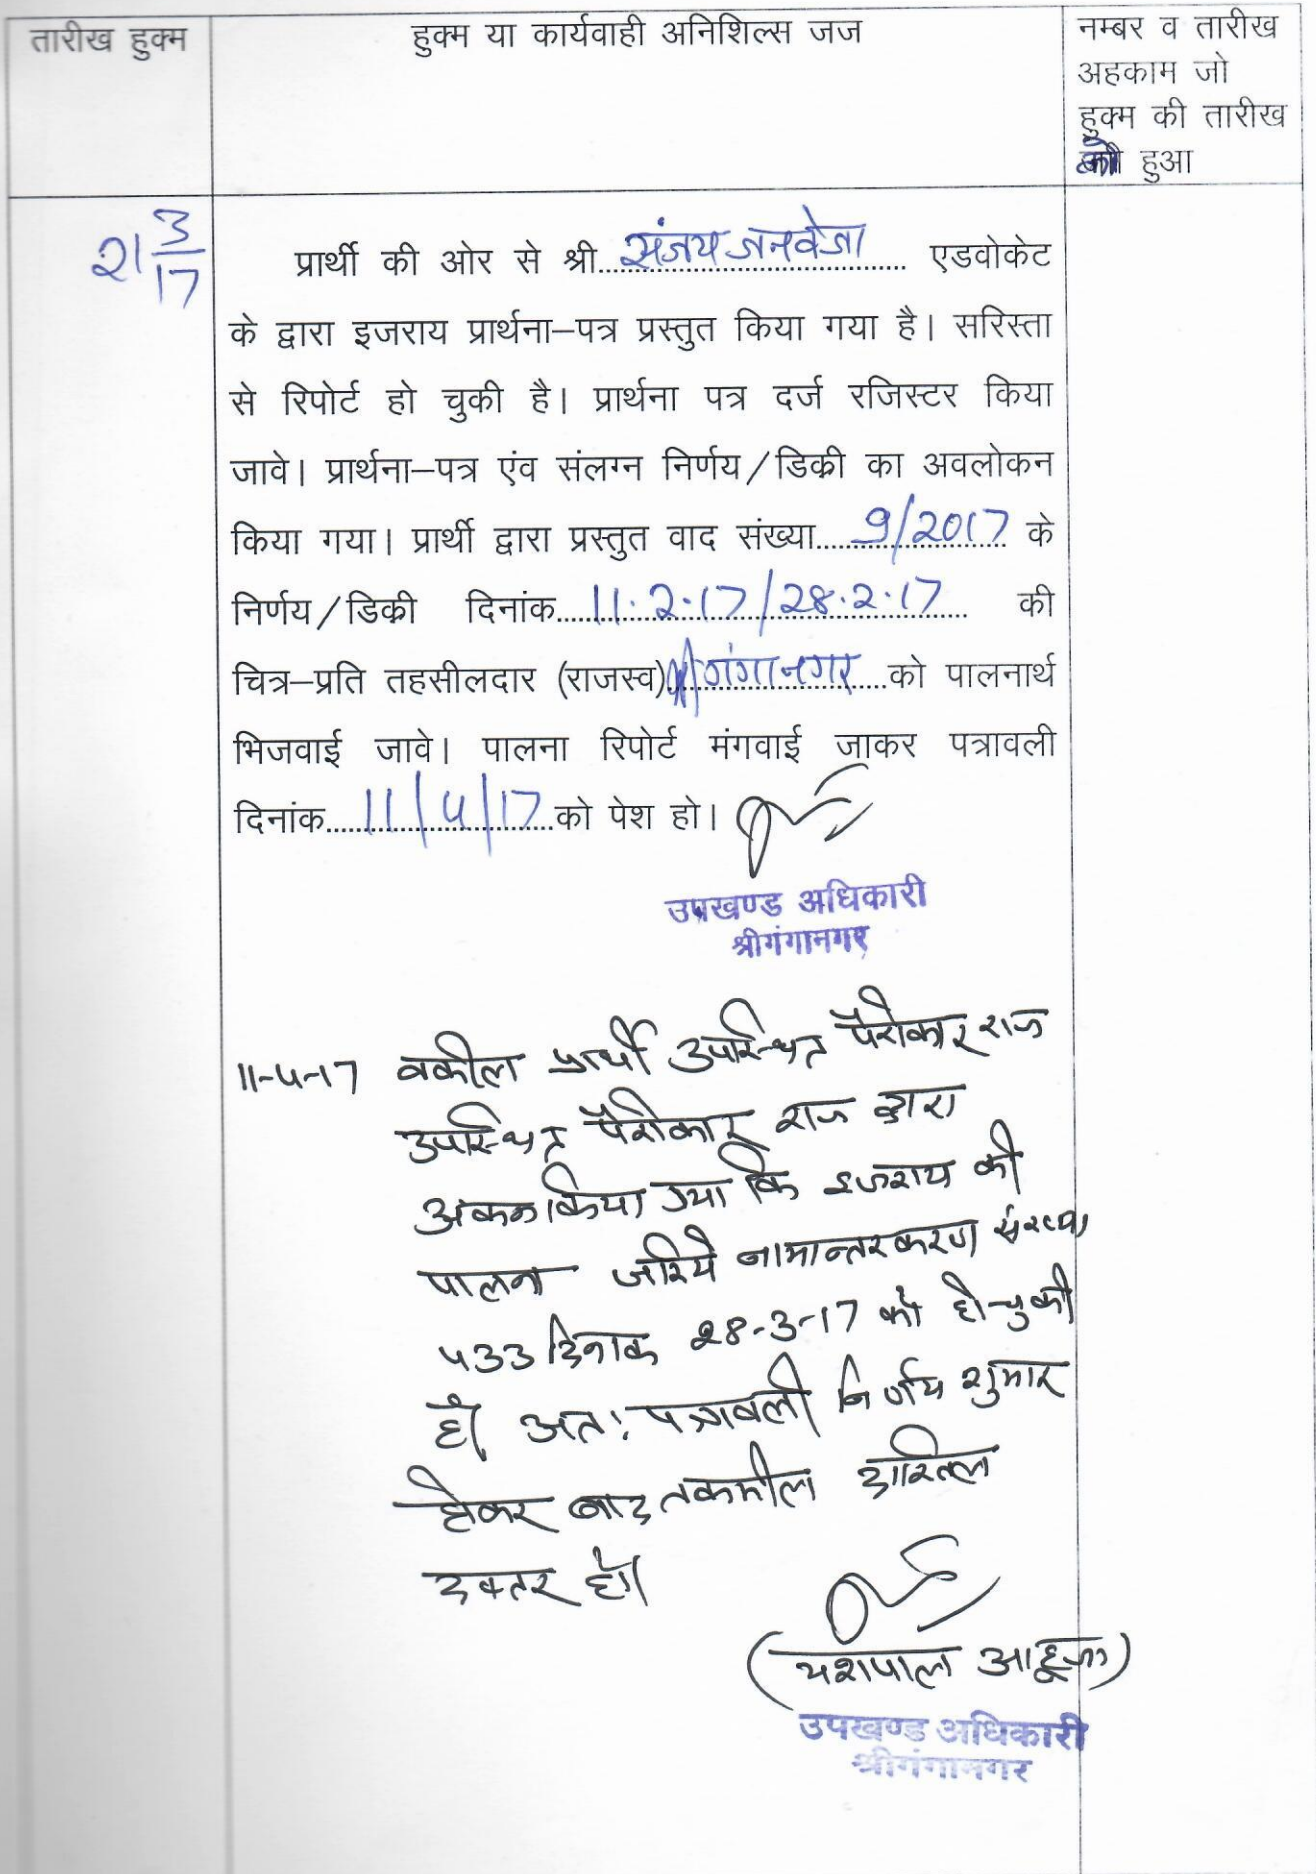 तारीख हुक्म
हुक्म या कार्यवाही अनिशिल्स जज
नम्बर व तारीख
अहकाम जो
हुक्म की तारीख
को हुआ
21 3/17
प्रार्थी की ओर से श्री संजय जनवेजा एडवोकेट
के द्वारा इजराय प्रार्थना–पत्र प्रस्तुत किया गया है। सरिस्ता
से रिपोर्ट हो चुकी है। प्रार्थना पत्र दर्ज रजिस्टर किया
जावे। प्रार्थना–पत्र एंव संलग्न निर्णय/डिक्री का अवलोकन
किया गया। प्रार्थी द्वारा प्रस्तुत वाद संख्या 9/2017 के
निर्णय/डिक्री दिनांक 11.2.17/28.2.17 की
चित्र–प्रति तहसीलदार (राजस्व) गंगानगर को पालनार्थ
भिजवाई जावे। पालना रिपोर्ट मंगवाई जाकर पत्रावली
दिनांक 11/4/17 को पेश हो।
उपखण्ड अधिकारी
श्रीगंगानगर
11-4-17 वकील प्रार्थी उपस्थित पैरोकार राज
उपस्थित पैरोकार राज द्वारा
अंकन किया गया कि इजराय की
पालना जरिये नामान्तरकरण संख्या
433 दिनांक 28-3-17 को हो चुकी
है। अत: पत्रावली निर्णय शुमार
होकर बाद तकमील दाखिल
दफ्तर हो।
(यशपाल आहूजा)
उपखण्ड अधिकारी
श्रीगंगानगर